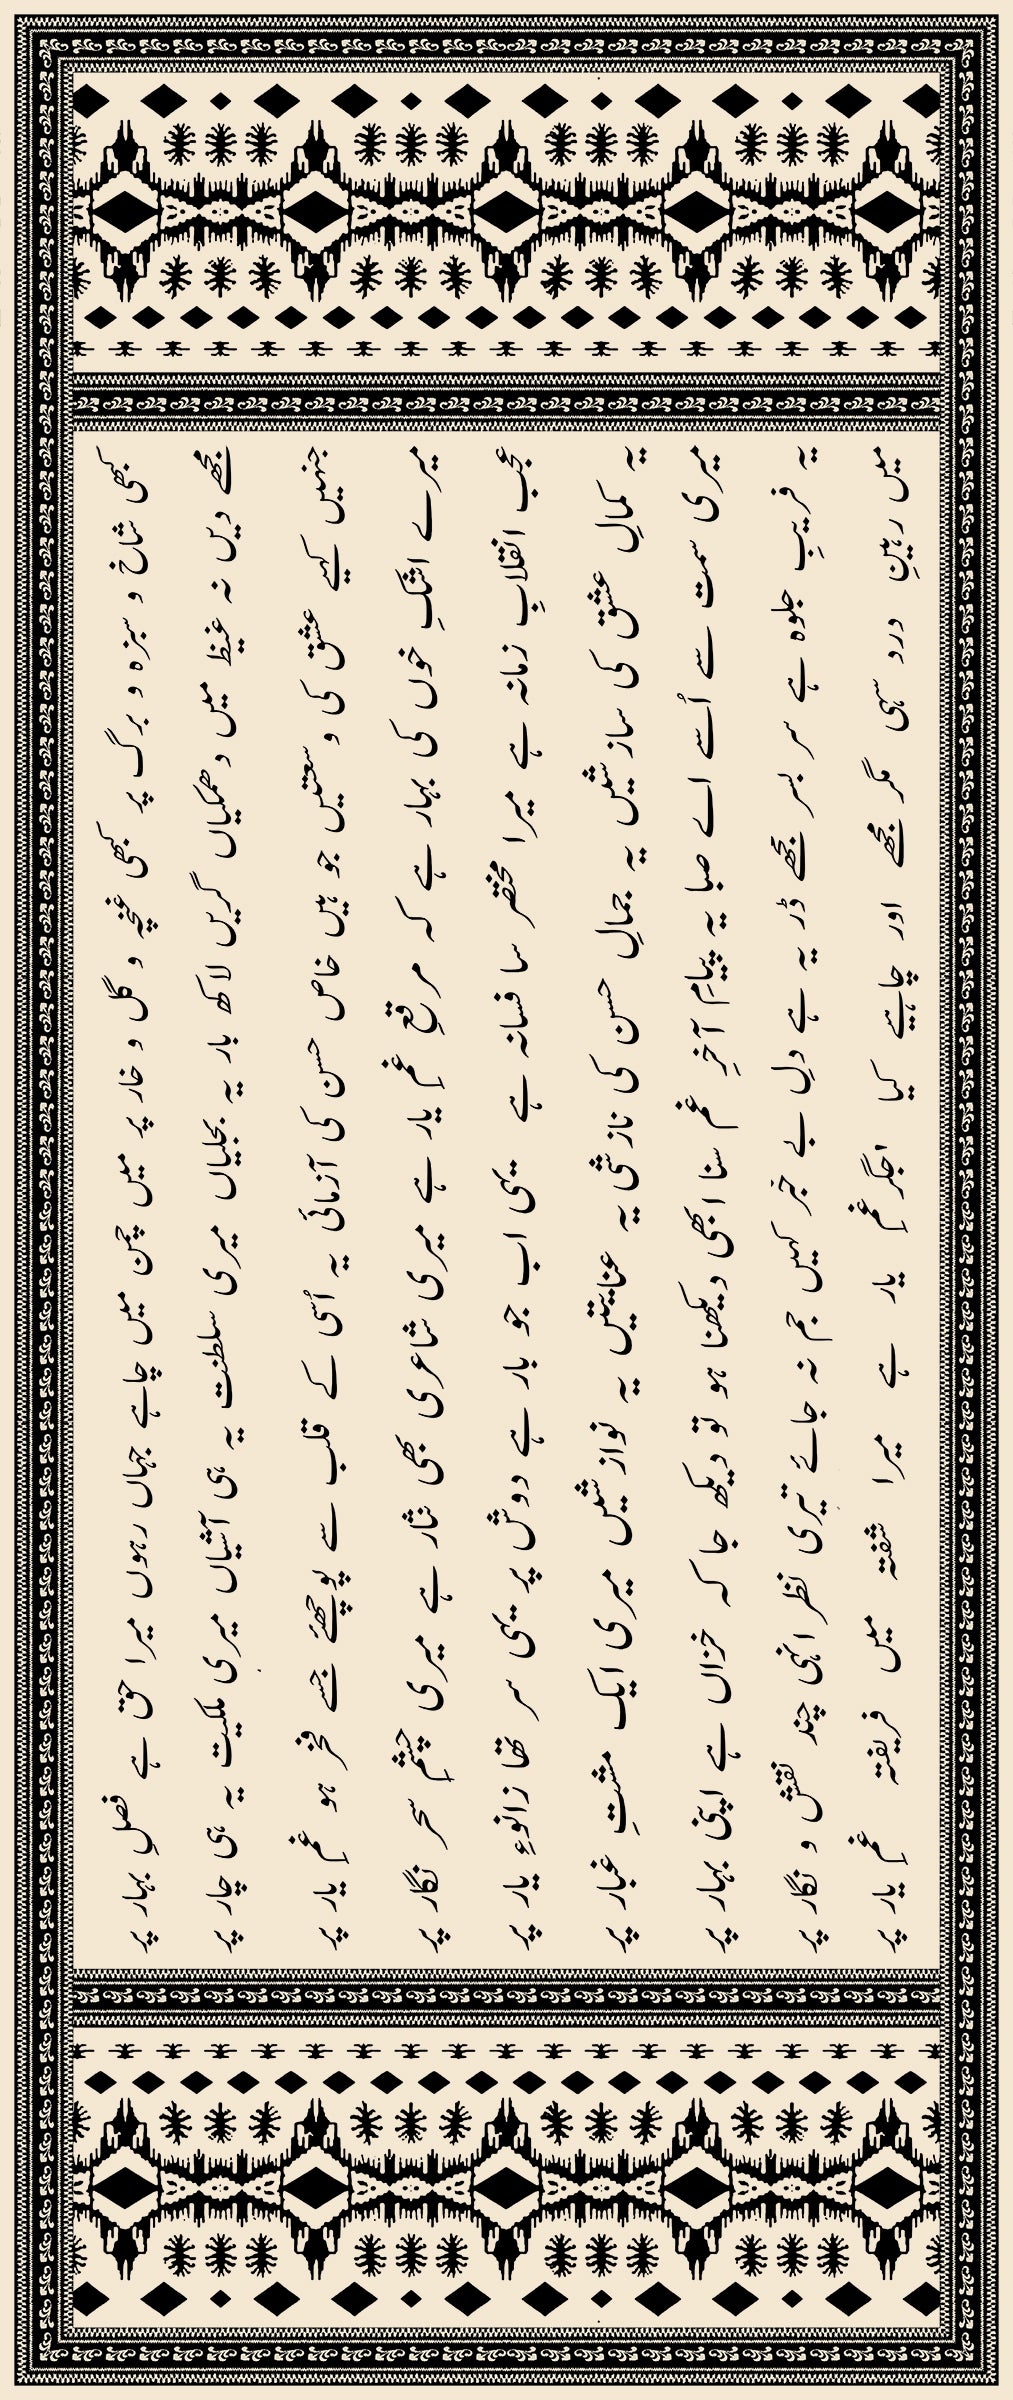 کبھی شاخ و سبزہ و برگ پر کبھی غنچہ و گل و خار پر میں چمن میں چاہے جہاں رہوں میرا حق ہے فصلِ بہار پر
مجھے دیں نہ غیظ میں دھمکیاں گریں لاکھ بار یہ بجلیاں میری سلطنت یہ ہی آشیاں میری ملکیت یہ ہی چار پر
جنہیں کہیے عشق کی وسعتیں جو ہیں خاص حسن کی آزمائی یہ اُسی کے قلب سے پوچھئے جسے فخر ہو غمِ یار پر
میرے اشکِ خوں کی بہار ہے کہ مرقعِ غمِ یار ہے میری شاعری بھی نثار ہے میری چشمِ سحر نگار پر
عجب انقلابِ زمانہ ہے میرا مختصر سا فسانہ ہے یہی اب جو بار ہے دوش پر یہی سر تھا زانوءِ یار پر
یہ کمالِ عشق کی سازشیں یہ جمالِ حسن کی نازشی یہ عنایتیں یہ نوازشیں میری ایک مشتِ غبار پر
میری سمت سے اُسے اے صبا یہ پیامِ آخرِ غم سنا ابھی دیکھنا ہو تو دیکھ جا کہ خزاں ہے اپنی بہار پر
یہ فریبِ جلوہ ہے سر بسر مجھے ڈر یہ ہے دلِ بے خبر کہیں جم نہ جائے تیری نظر انہی چند نقش و نگار پر
میں رہینِ درد سہی مگر مجھے اور چاہیے کیا 'جگر غمِ یار ہے میرا شفتہ میں فریفتہ غمِ یار پر